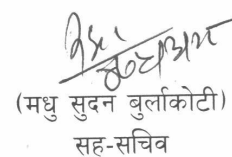 (मधु सुदन बुर्लाकोटी)
सह-सचिव